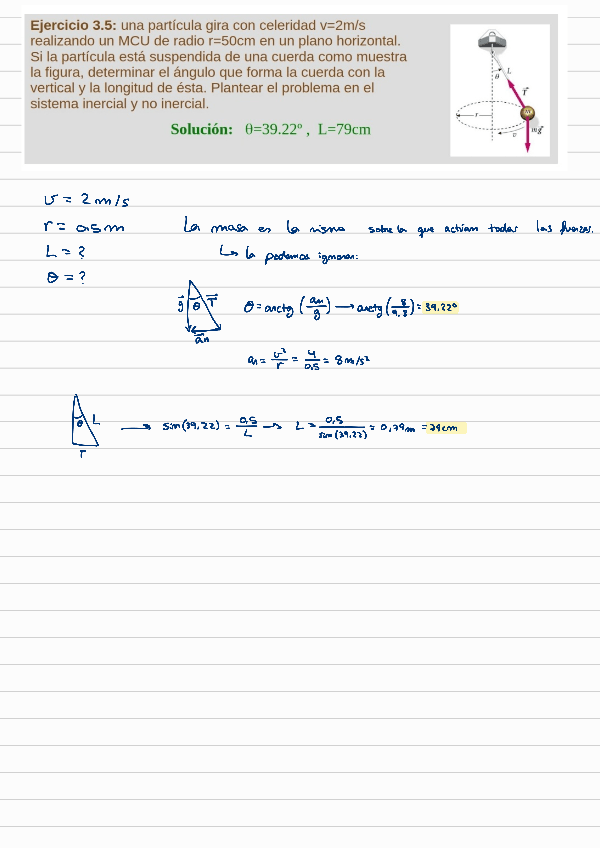 Ejercicio 3.5: una partícula gira con celeridad v=2m/s
realizando un MCU de radio r=50cm en un plano horizontal.
Si la partícula está suspendida de una cuerda como muestra
la figura, determinar el ángulo que forma la cuerda con la
vertical y la longitud de ésta. Plantear el problema en el
sistema inercial y no inercial.
Solución: θ=39.22º , L=79cm
θ
L
T⃗
r
m
v
mg⃗
v = 2 m/s
r = 0,5 m
La masa es la misma sobre la que actúan todas las fuerzas.
L = ?
↳ la podemos ignorar:
θ = ?
g⃗ θ T⃗
a⃗n
θ = arctg (an/g) → arctg (8/9,8) = 39,22º
an = v²/r = 4/0,5 = 8 m/s²
θ L
r
→ sin(39,22) = 0,5/L → L = 0,5/sin(39,22) = 0,79m = 79cm